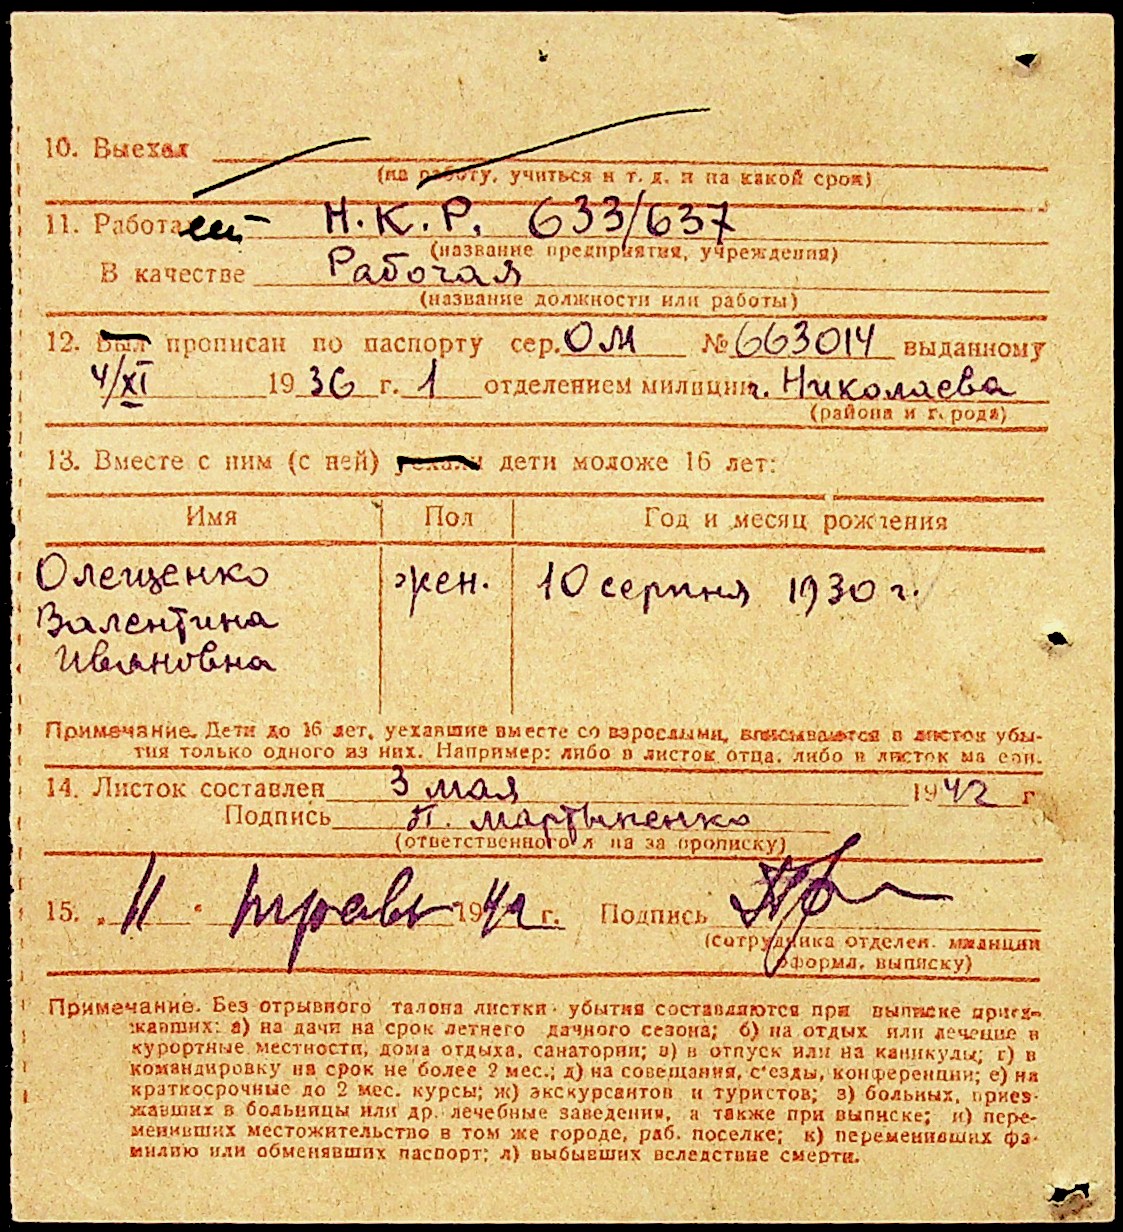 10. Выехал
(на работу, учиться и т. д. и на какой срок)
11. Работает Н.К.Р. 633/637
(название предприятия, учреждения)
В качестве Рабочая
(название должности или работы)
12. Был прописан по паспорту сер. ОМ № 663014 выданному
4/XI 1936 г. 1 отделением милиции г. Николаева
(района и города)
13. Вместе с ним (с ней) уехали дети моложе 16 лет:
Имя Пол Год и месяц рождения
Олещенко жен. 10 серпня 1930 г.
Валентина
Ивановна
Примечание. Дети до 16 лет, уехавшие вместе со взрослыми, вписываются в листок убы-
тия только одного из них. Например: либо в листок отца, либо в листок ма ери.
14. Листок составлен 3 мая 1942 г
Подпись П. Мартыненко
(ответственного л на за прописку)
15. „11“ травь 1942 г. Подпись
(сотрудника отделен. милиции
оформл. выписку)
Примечание. Без отрывного талона листки убытия составляются при выписке приез-
жавших: а) на дачи на срок летнего дачного сезона; б) на отдых или лечение в
курортные местности, дома отдыха, санатории; в) в отпуск или на каникулы; г) в
командировку на срок не более 2 мес.; д) на совещания, с'езды, конференции; е) на
краткосрочные до 2 мес. курсы; ж) экскурсантов и туристов; з) больных, приез-
жавших в больницы или др. лечебные заведения, а также при выписке; и) пере-
менивших местожительство в том же городе, раб. поселке; к) переменивших фа-
милию или обменявших паспорт; л) выбывших вследствие смерти.